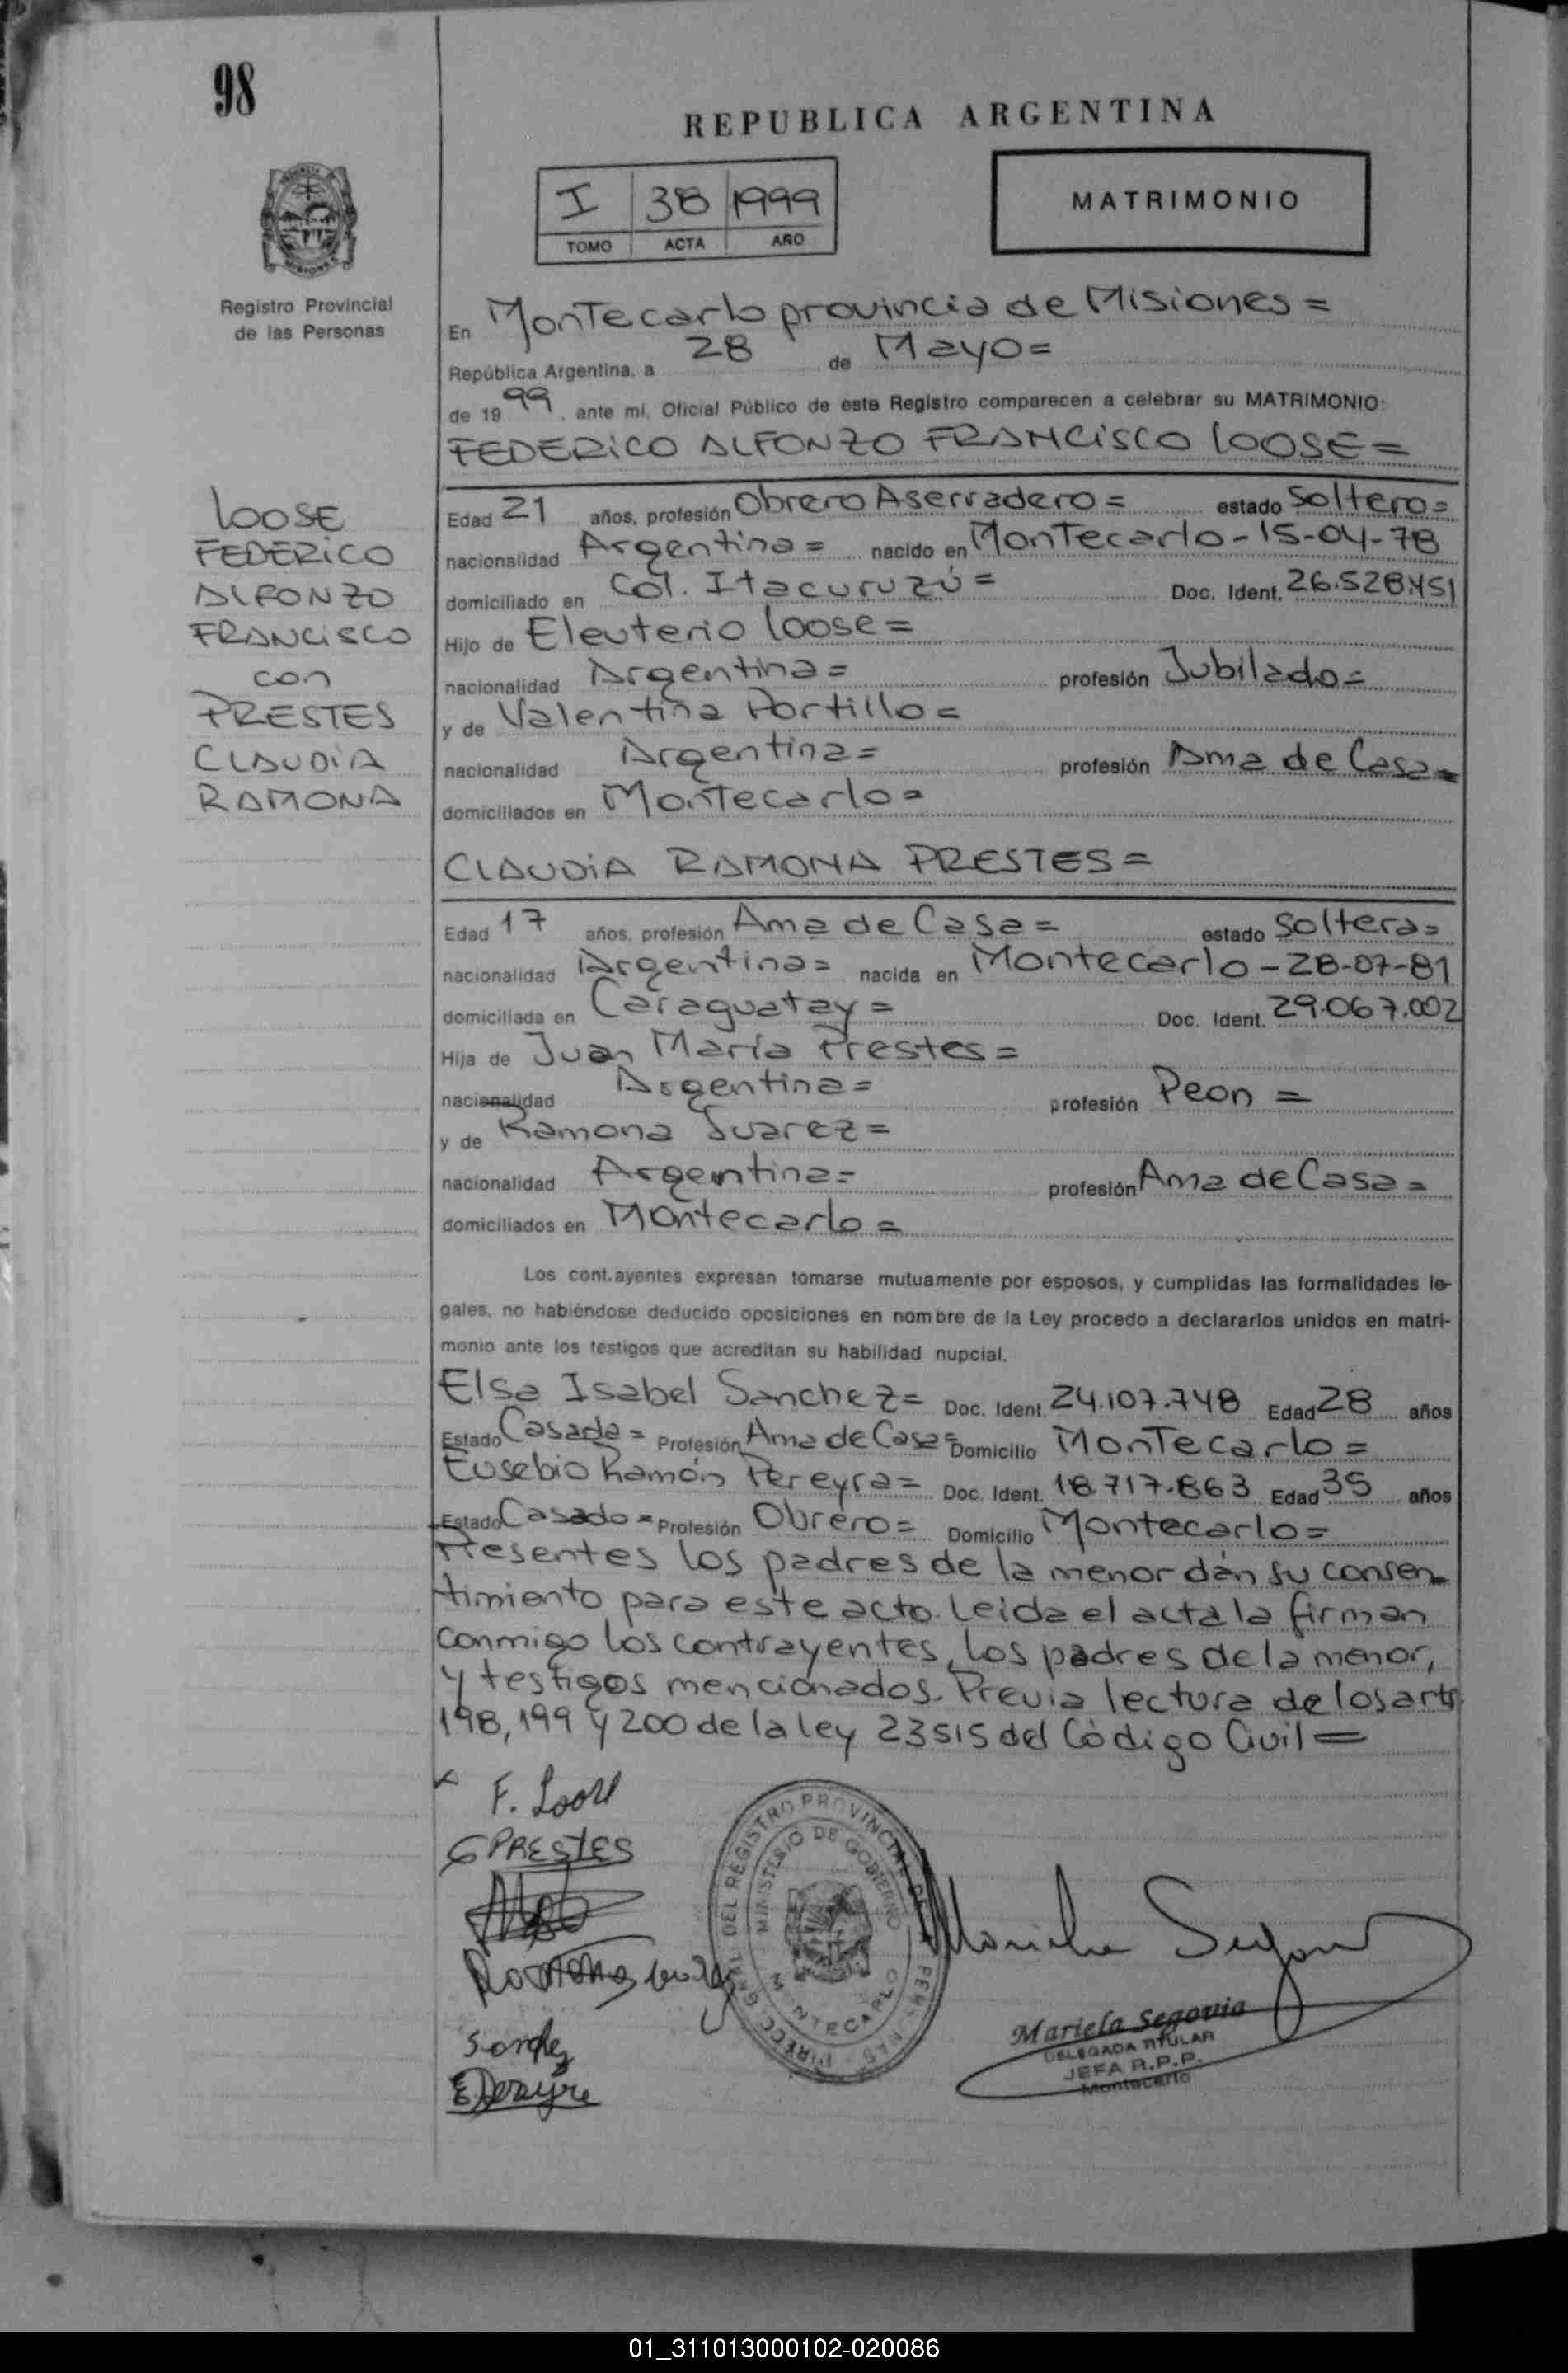 98
REPUBLICA ARGENTINA
I 38 1999
TOMO ACTA AÑO
MATRIMONIO
Registro Provincial
de las Personas
En Montecarlo provincia de Misiones =
República Argentina, a 28 de Mayo =
de 1999, ante mi, Oficial Público de este Registro comparecen a celebrar su MATRIMONIO:
FEDERICO ALFONZO FRANCISCO LOOSE =
LOOSE
FEDERICO
ALFONZO
FRANCISCO
con
PRESTES
CLAUDIA
RAMONA
Edad 21 años, profesión Obrero Aserradero = estado Soltero =
nacionalidad Argentina = nacido en Montecarlo - 15-04-78
domiciliado en Col. Itacuruzú = Doc. Ident. 26.528.451
Hijo de Eleuterio Loose =
nacionalidad Argentina = profesión Jubilado =
y de Valentina Portillo =
nacionalidad Argentina = profesión Ama de Casa =
domiciliados en Montecarlo =
CLAUDIA RAMONA PRESTES =
Edad 17 años, profesión Ama de Casa = estado Soltera =
nacionalidad Argentina = nacida en Montecarlo - 28-07-81
domiciliada en Caraguatay = Doc. Ident. 29.067.002
Hija de Juan María Prestes =
nacionalidad Argentina = profesión Peon =
y de Ramona Suarez =
nacionalidad Argentina = profesión Ama de Casa =
domiciliados en Montecarlo =
Los cont.ayentes expresan tomarse mutuamente por esposos, y cumplidas las formalidades le-
gales, no habiéndose deducido oposiciones en nombre de la Ley procedo a declararlos unidos en matri-
monio ante los testigos que acreditan su habilidad nupcial.
Elsa Isabel Sanchez = Doc. Ident. 24.107.748 Edad 28 años
Estado Casada = Profesión Ama de Casa = Domicilio Montecarlo =
Eusebio Ramón Pereyra = Doc. Ident. 18.717.863 Edad 35 años
Estado Casado = Profesión Obrero = Domicilio Montecarlo =
Presentes los padres de la menor dán su consen-
timiento para este acto. Leida el acta la firman
conmigo los contrayentes, los padres de la menor,
y testigos mencionados. Previa lectura de los arts.
198, 199 y 200 de la ley 23515 del Código Civil =
F. Loose
C PRESTES
Ramona
E Pereyra
DIRECC. GRAL. DEL REGISTRO PROVINCIAL DE PERSONAS
MINISTERIO DE GOBIERNO
MONTECARLO
Mariela Segovia
Mariela Segovia
DELEGADA TITULAR
JEFA R.P.P.
Montecarlo
01_311013000102-020086